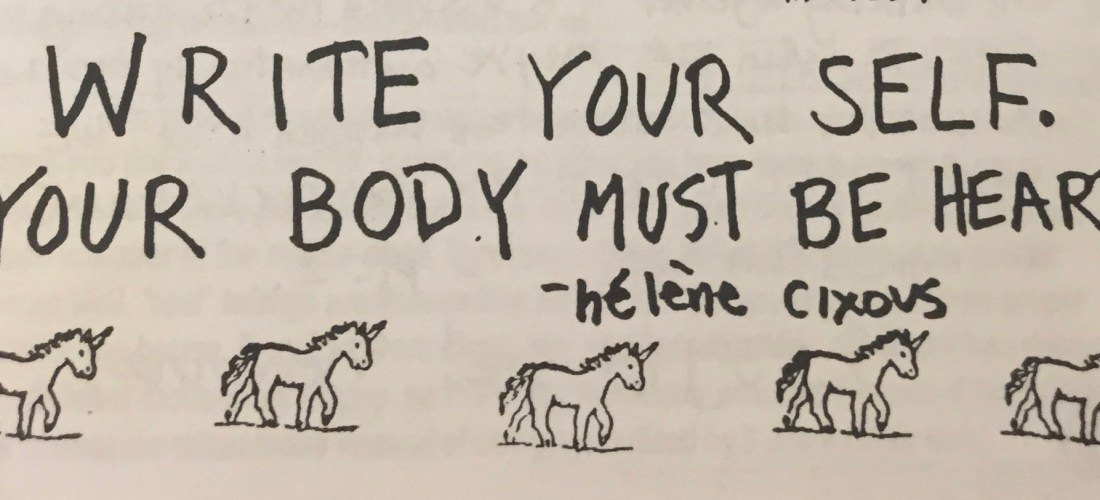 WRITE YOUR SELF.
YOUR BODY MUST BE HEAR
-hélène cixous